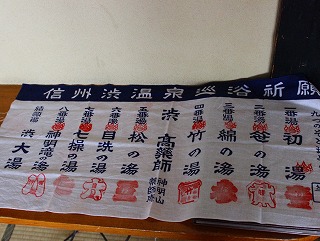 信州渋温泉巡浴祈願
一番湯 初湯
二番湯 笹の湯
三番湯 綿の湯
四番湯 竹の湯
渋 高薬師
神明山
五番湯 松の湯
六番湯 目洗の湯
七番湯 七操の湯
八番湯 神明滝の湯
結願湯 渋大湯